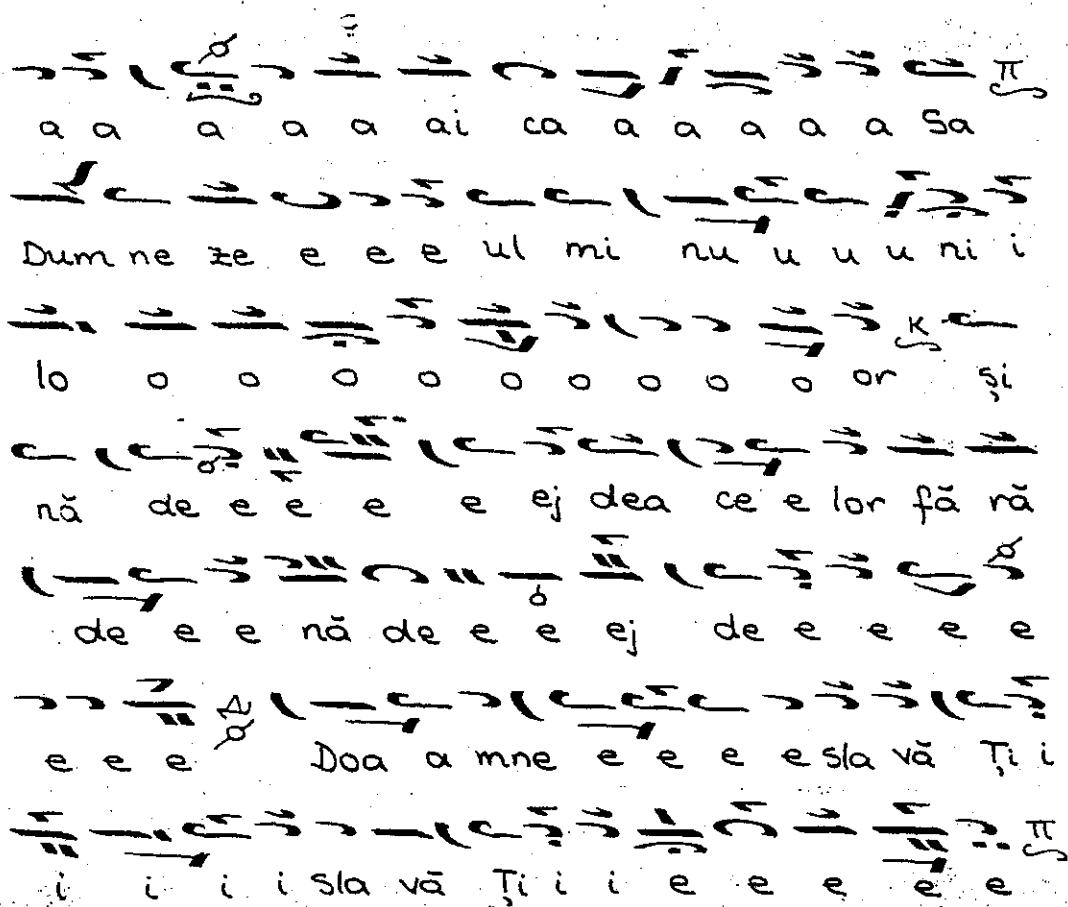 a a a a a ai ca a a a a a Sa
Dum ne ze e e e ul mi nu u u u ni i
lo o o o o o o o o o or și
nă de e e e e ej dea ce e lor fă ră
de e e nă de e e ej de e e e e
e e e Doa a mne e e e e sla vă Ți i
i i i i sla vă Ți i i e e e e e